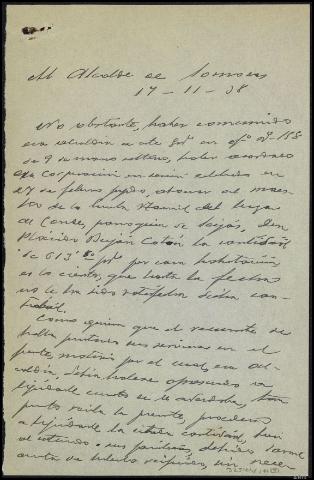 Al Alcalde de Somozas
17-11-38
No obstante, haber comunicado
esa alcaldía a este en of. nº 155
de 9 de marzo último, haber acordado
esa Corporación en sesión celebrada en
27 de febrero pdo, abonar al maes-
tro de la escuela del lugar
de parroquia de Seijas, Don
Plácido Beján Catán, la cantidad
de 613'80 pts por casa habitación,
es lo cierto, que hasta la fecha
no le ha sido satisfecha dicha can-
tidad.
Como quiera que el recurrente se
halla prestando sus servicios en el
frente, motivo por el cual, esa al-
caldía, debía haberse apresurado a
liquidarle cuanto se le adeudaba, tan
pronto reciba la presente, procederá
a liquidarle la citada cantidad, bien
al interesado o sus familiares, debiendo darme
cuenta de haberlo verificado, sin